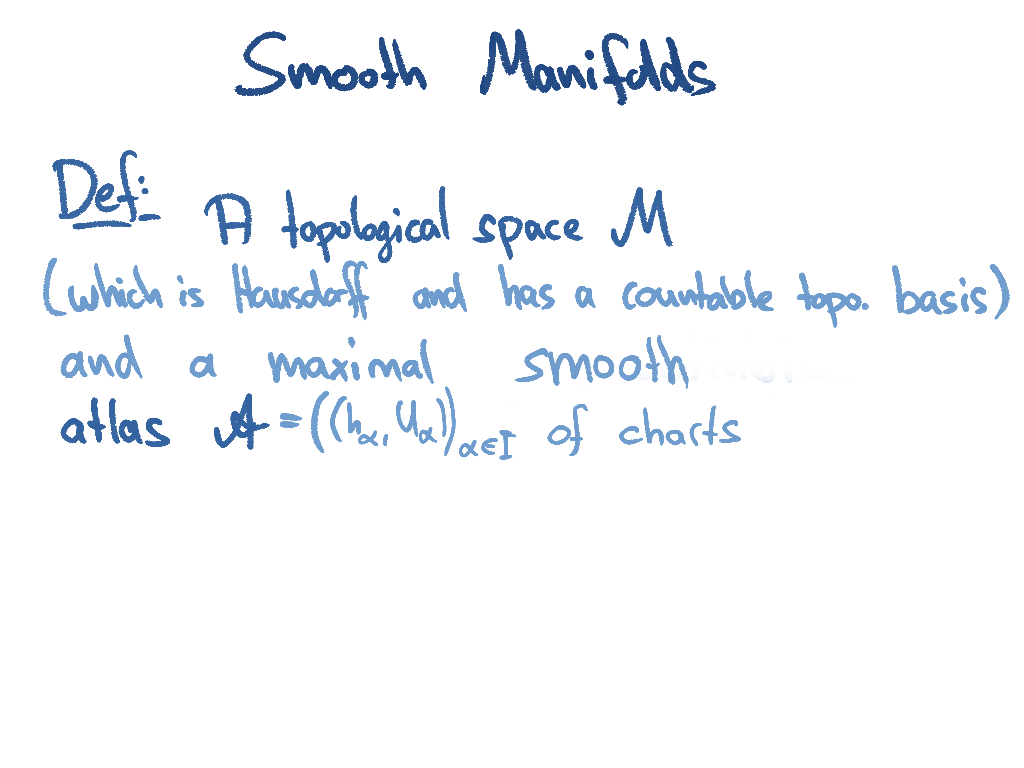 Smooth Manifolds
Def:
A topological space M
(which is Hausdorff and has a countable topo. basis)
and a maximal smooth
atlas 𝒜 = ((h_α, U_α))_{α∈I} of charts